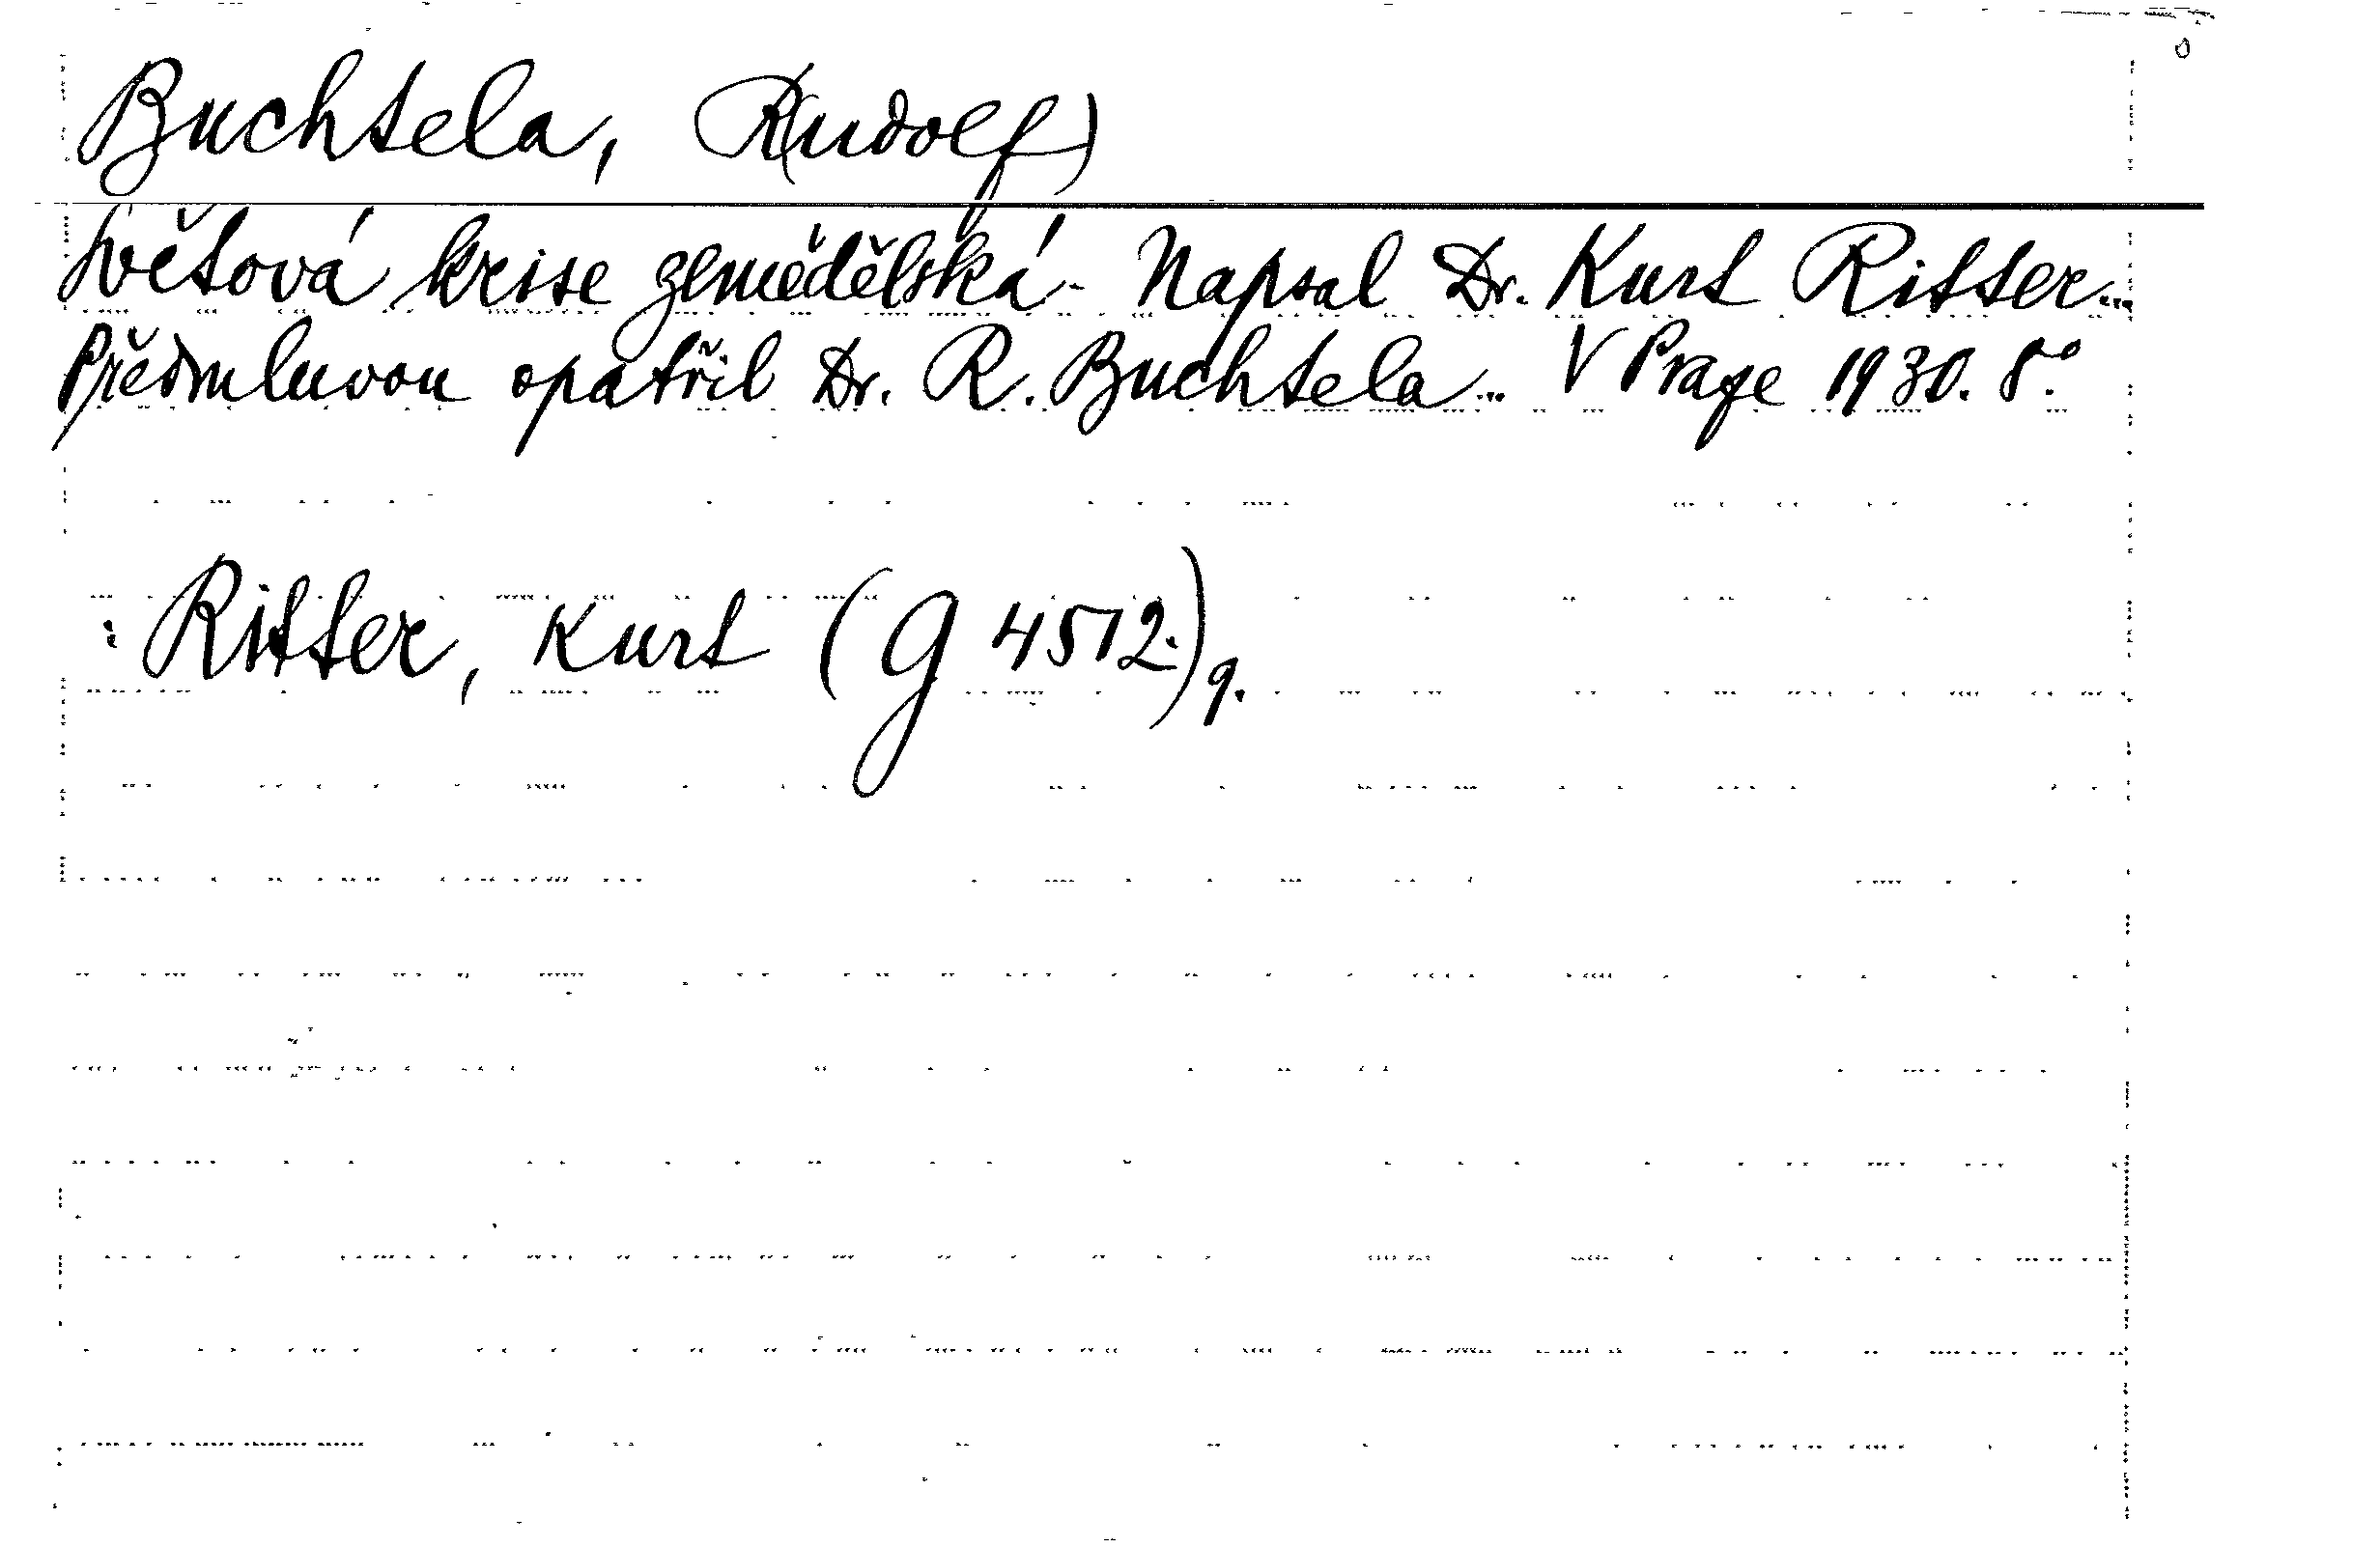 Buchtela, R(udolf)
Světová krise zemědělská. Napsal Dr. Kurt Ritter...
Předmluvou opatřil Dr. R. Buchtela... V Praze 1930. 8.°
: Ritter, Kurt (G 4512.) q.